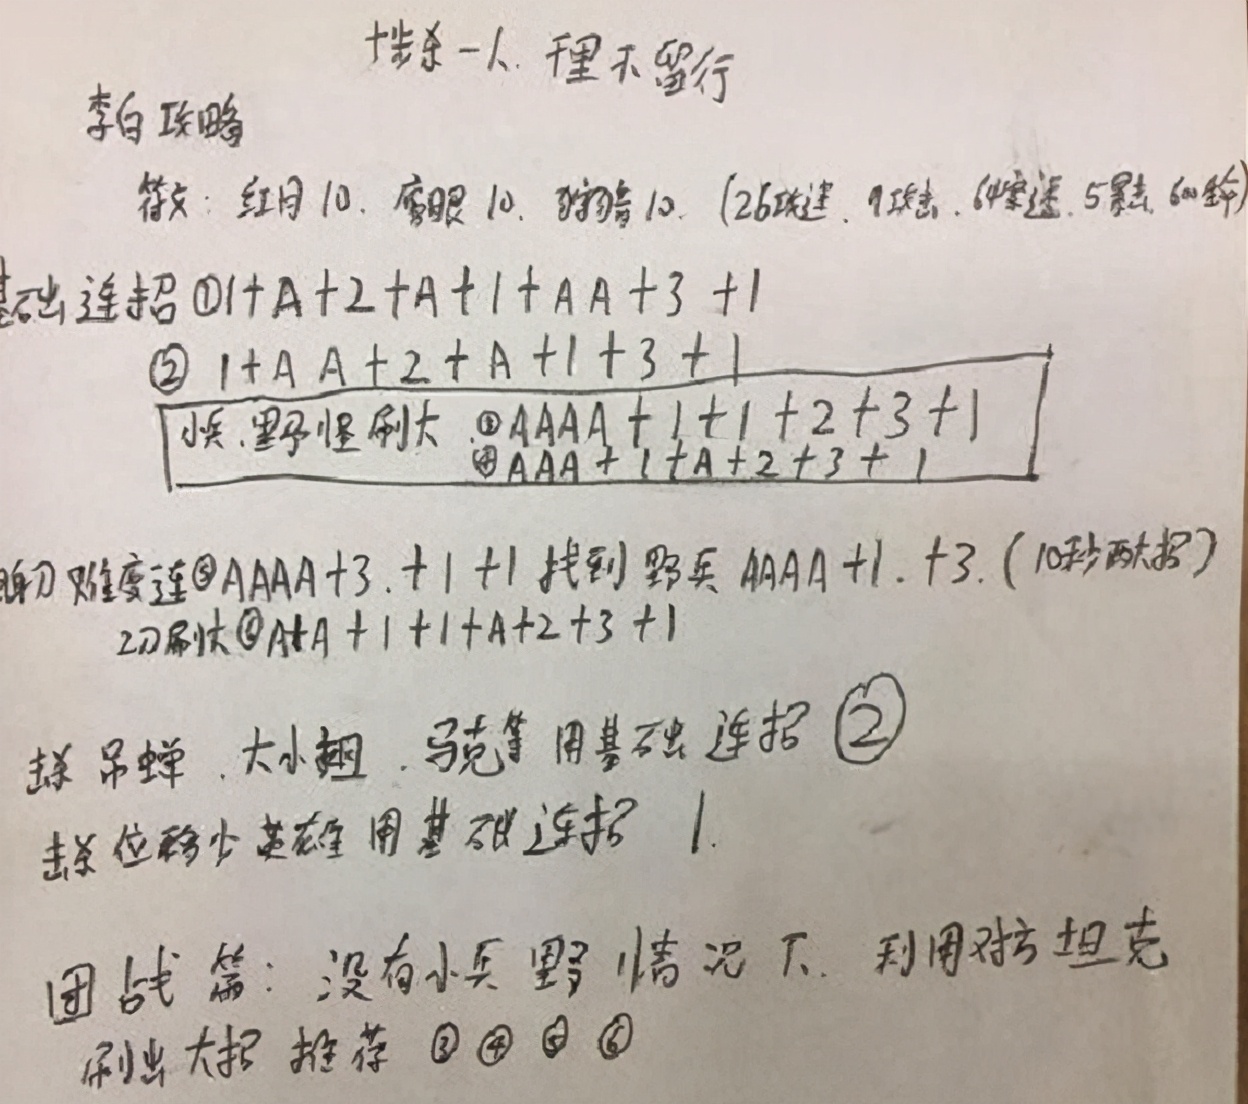 十步杀一人.千里不留行
李白攻略
符文:红月10.鹰眼10.狩猎10.(26攻速.9攻击.64穿透.5暴击.600生命)
基础连招①1+A+2+A+1+AA+3+1
②1+AA+2+A+1+3+1
小兵.野怪刷大.③AAAA+1+1+2+3+1
④AAA+1+A+2+3+1
难度连⑤AAAA+3.+1+1找到野兵AAAA+1.+3.(10秒两大招)
2刀刷大⑥A+A+1+1+A+2+3+1
击杀吊蝉.大小翘.马克等用基础连招②
击杀位移少英雄用基础连招1.
团战篇:没有小兵野情况下.利用对方坦克
刷出大招推荐③④⑤⑥